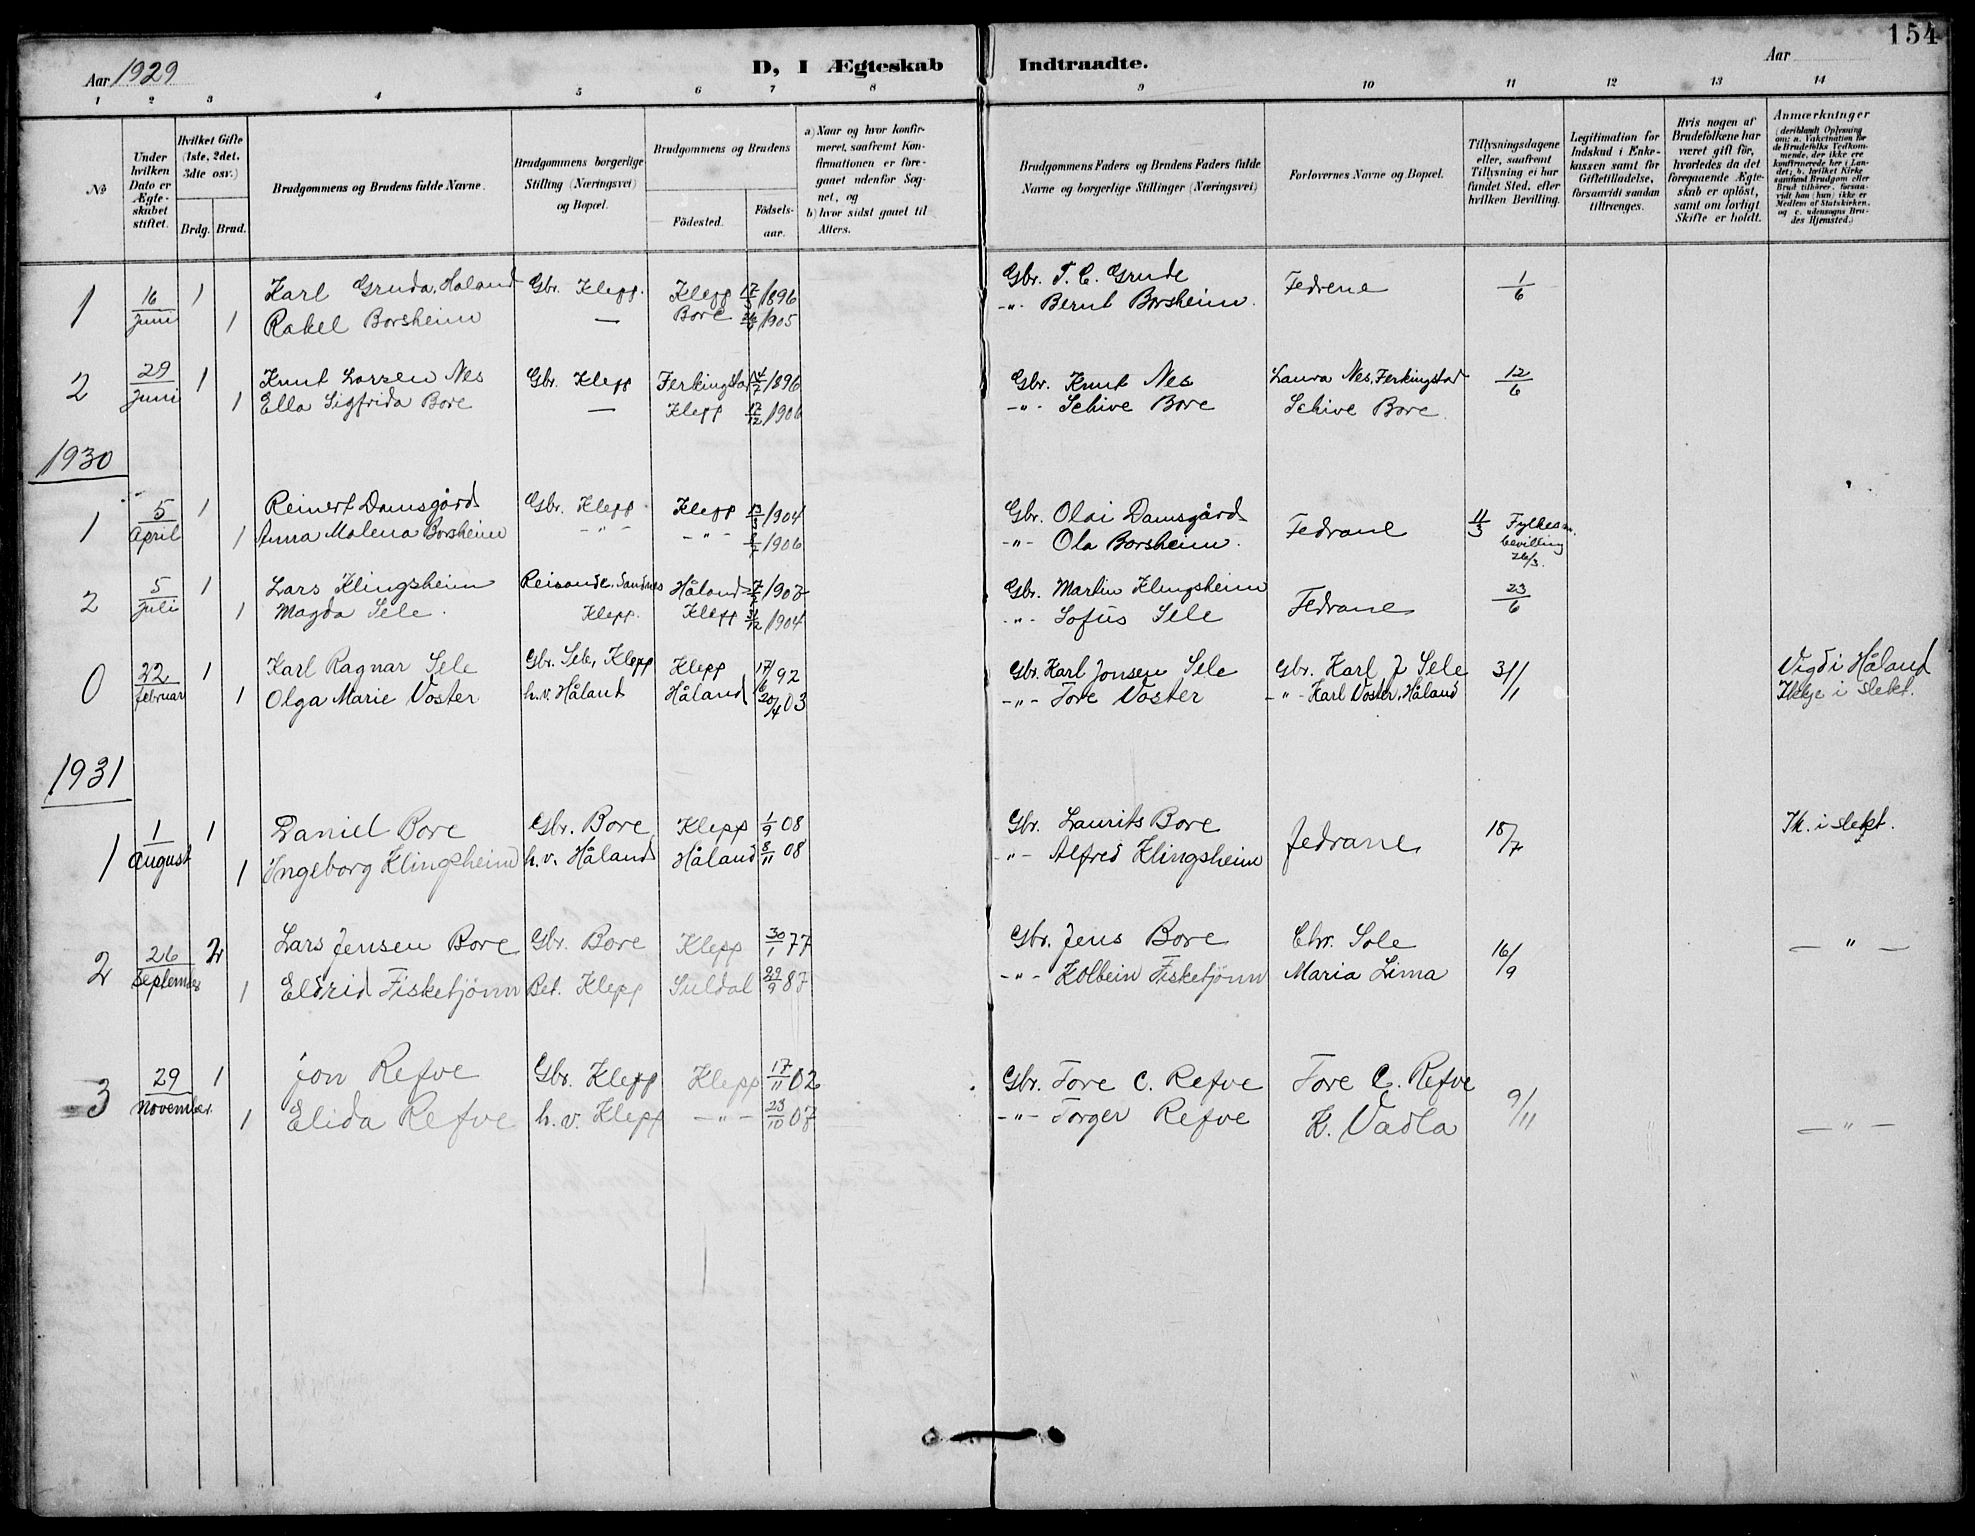 154
Aar 1929
D, I Ægteskab Indtraadte.
Aar
1 2 3 4 5 6 7 8 9 10 11 12 13 14
No
Under hvilken Dato er Ægteskabet stiftet.
Hvilket Gifte (1ste, 2det, 3dte osv.)
Brdg. Brud.
Brudgommens og Brudens fulde Navne.
Brudgommens borgerlige Stilling (Næringsvei) og Bopæl.
Brudgommens og Brudens
Födested.
Födselsaar.
a) Naar og hvor konfirmeret, saafremt Konfirmationen er foregaaet udenfor Sognet, og
b) hvor sidst gaaet til Alters.
Brudgommens Faders og Brudens Faders fulde Navne og borgerlige Stillinger (Næringsvei)
Forlovernes Navne og Bopæl.
Tillysningsdagene eller, saafremt Tillysning ei har fundet Sted, efter hvilken Bevilling.
Legitimation for Indskud i Enkekassen samt for Giftetilladelse, forsaavidt saadan tiltrænges.
Hvis nogen af Brudefolkene har været gift för, hvorledes da det foregaaende Ægteskab er oplöst, samt om lovligt Skifte er holdt.
Anmærkninger
(deriblandt Oplysning om: a. Vakcination for de Brudefolks Vedkommende, der ikke ere konfirmerede her i Landet; b. hvilket Kirkesamfund Brudgom eller Brud tilhörer, forsaavidt han (hun) ikke er Medlem af Statskirken, og c. udensogns Brudes Hjemsted.)
1 16/juni 1 Karl Gruda, Håland Gbr. Klepp. Klepp 17/3 1896 Gbr. T. C. Grude Fedrene 1/6
1 Rakel Borsheim — Bore /1905 -"- Bernt Borsheim.
2 29/juni 1 Knut Larsen Nes Gbr. Klepp Ferkingstad /1896 Gbr. Knut Nes Laura Nes, Ferkingstad 12/6
1 Ella Sigfrida Bore — Klepp 17/12 1906 -"- Schive Bore Schive Bore
1930
1 5/April 1 Reinert Damsgård Gbr. Klepp Klepp 13/3 1904 Gbr. Olai Damsgård Fedrane 11/3 Fylkesm. bevilling 26/3.
1 Anna Malena Borsheim -"- -"- /1906 -"- Ola Borsheim.
2 5/juli 1 Lars Klingsheim Reisande, Sandnes Håland /1902 Gbr. Martin Klingsheim Fedrane 23/6
1 Magda Sele. Klepp. Klepp /1904 -"- Sofus Sele
0 22/februar 1 Karl Ragnar Sele Gbr. Sele, Klepp Klepp 92 Gbr. Karl Jonsen Sele Gbr. Karl J Sele 31/1 Vigd i Håland
1 Olga Marie Voster h.v. Håland Håland 20/4 03 -"- Tore Voster -"- Karl Voster, Håland Ikkje i slekt.
1931
1 1/August 1 Daniel Bore Gbr. Bore Klepp 1/9 08 Gbr. Laurits Bore Fedrane 18/7 Ik. i slekt.
1 Ingeborg Klingsheim h.v. Håland Håland 8/11 08 -"- Alfred Klingsheim
2 26/September 2 Lars Jensen Bore Gbr. Bore Klepp 30/1 77 Gbr. Jens Bore Chr. Sole 16/9 — " —
1 Eldrid Fisketjönn Bet. Klepp Suldal 29/9 87 -"- Kolbein Fisketjönn Maria Lima
3 29/November 1 Jon Refve Gbr. Klepp Klepp 17/11 02 Gbr. Tore C. Refve Tore C. Refve 9/11
1 Elida Refve h.v. Klepp -"- 23/10 07 -"- Torger Refve K. Vadla — " —